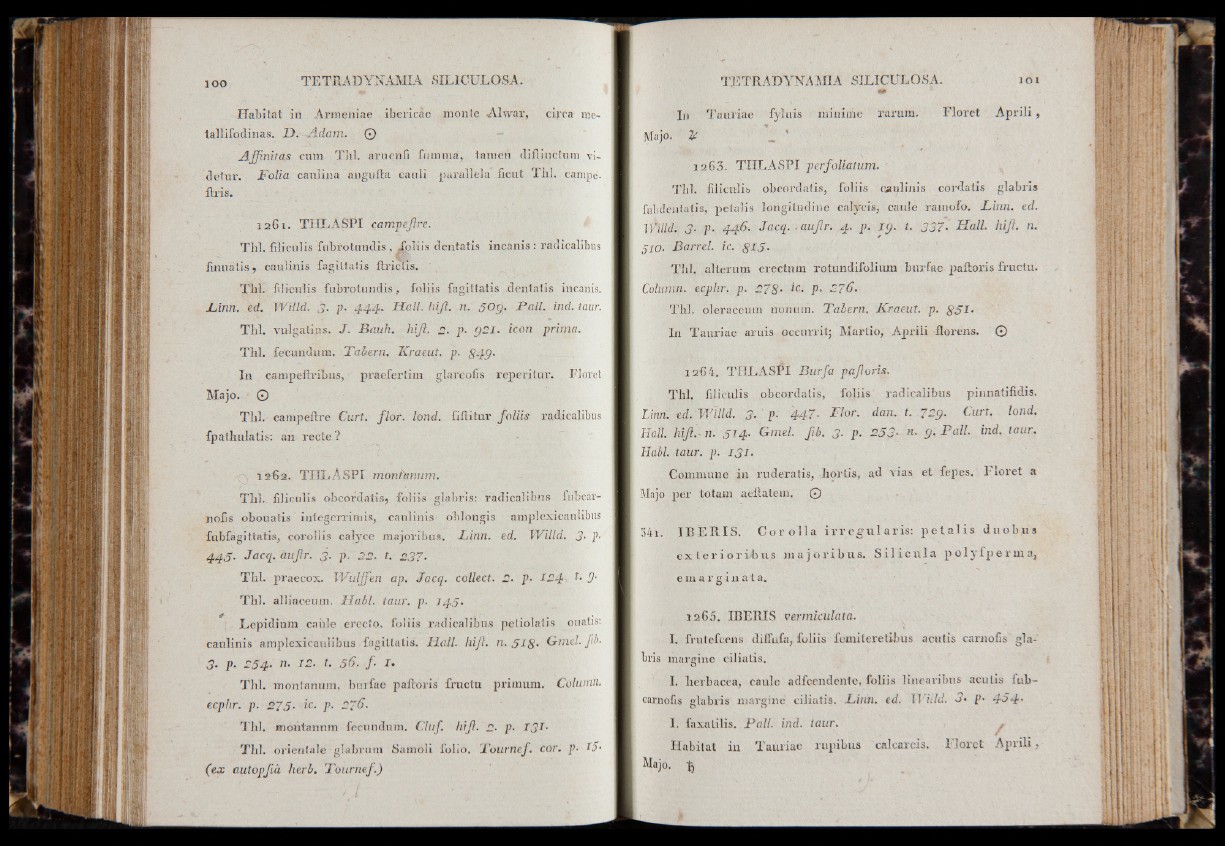 100 TETRADYNAMIA SILICULOSA.
Habitat in Armeniae ibericae monte Alwar, circa me-
tallifodinas. D. Adam. ☉
Affinitas cum Thl. aruenſi ſumma, tamen diſtinctum vi-
detur. Folia caulina anguſta cauli parallela ſicut Thl. campe-
ſtris.
1261. THLASPI campeſtre.
Thl. ſiliculis ſubrotundis, foliis dentatis incanis: radicalibus
ſinuatis, caulinis ſagittatis ſtrictis.
Thl. ſiliculis ſubrotundis, foliis ſagittatis dentatis incanis.
Linn. ed. Willd. 3. p. 444. Hall. hiſt. n. 509. Pall. ind. taur.
Thl. vulgatius. J. Bauh. hiſt. 2. p. 921. icon prima.
Thl. ſecundum. Tabern. Kraeut. p. 849.
In campeſtribus, praeſertim glareoſis reperitur. Floret
Majo. ☉
Thl. campeſtre Curt. flor. lond. ſiſtitur foliis radicalibus
ſpathulatis: an recte?
1262. THLASPI montanum.
Thl. ſiliculis obcordatis, foliis glabris: radicalibus ſubcar-
noſis obouatis integerrimis, caulinis oblongis amplexicaulibus
ſubſagittatis, corollis calyce majoribus. Linn. ed. Willd. 3. p.
445. Jacq. auſtr. 3. p. 22. t. 237.
Thl. praecox. Wulffen ap. Jacq. collect. 2. p. 124. t. 9.
Thl. alliaceum. Habl. taur. p. 145.
Lepidium caule erecto, foliis radicalibus petiolatis ouatis:
caulinis amplexicaulibus ſagittatis. Hall. hiſt. n. 518. Gmel. ſib.
3. p. 254. n. 12. t. 56. f. 1.
Thl. montanum, burſae paſtoris fructu primum. Column.
ecphr. p. 275. ic. p. 276.
Thl. montanum ſecundum. Cluſ. hiſt. 2. p. 131.
Thl. orientale glabrum Samoli folio. Tournef. cor. p. 15.
(ex autopſiâ herb. Tournef.)
TETRADYNAMIA SILICULOSA. 101
In Tauriae ſyluis minime rarum. Floret Aprili,
Majo. ♃
1263. THLASPI perfoliatum.
Thl. ſiliculis obcordatis, foliis caulinis cordatis glabris
ſubdentatis, petalis longitudine calycis, caule ramoſo. Linn. ed.
Willd. 3. p. 446. Jacq. auſtr. 4. p. 19. t. 337. Hall. hiſt. n.
510. Barrel. ic. 815.
Thl. alterum erectum rotundifolium burſae paſtoris fructu.
Column. ecphr. p. 278. ic. p. 276.
Thl. oleraceum nonum. Tabern. Kraeut. p. 851.
In Tauriae aruis occurrit; Martio, Aprili florens. ☉
1264. THLASPI Burſa paſtoris.
Thl. ſiliculis obcordatis, foliis radicalibus pinnatifidis.
Linn. ed. Willd. 3. p. 447. Flor. dan. t. 729. Curt. lond.
Hall. hiſt. n. 514. Gmel. ſib. 3. p. 253. n. 9. Pall. ind. taur.
Habl. taur. p. 131.
Commune in ruderatis, hortis, ad vias et ſepes. Floret a
Majo per totam aeſtatem. ☉
341. IBERIS. Corolla irregularis: petalis duobus
exterioribus majoribus. Silicula polyſperma,
emarginata.
1265. IBERIS vermiculata.
I. fruteſcens diffuſa, foliis ſemiteretibus acutis carnoſis gla-
bris margine ciliatis.
I. herbacea, caule adſcendente, foliis linearibus acutis ſub-
carnoſis glabris margine ciliatis. Linn. ed. Willd. 3. p. 454.
I. ſaxatilis. Pall. ind. taur.
Habitat in Tauriae rupibus calcareis. Floret Aprili,
Majo. ♄